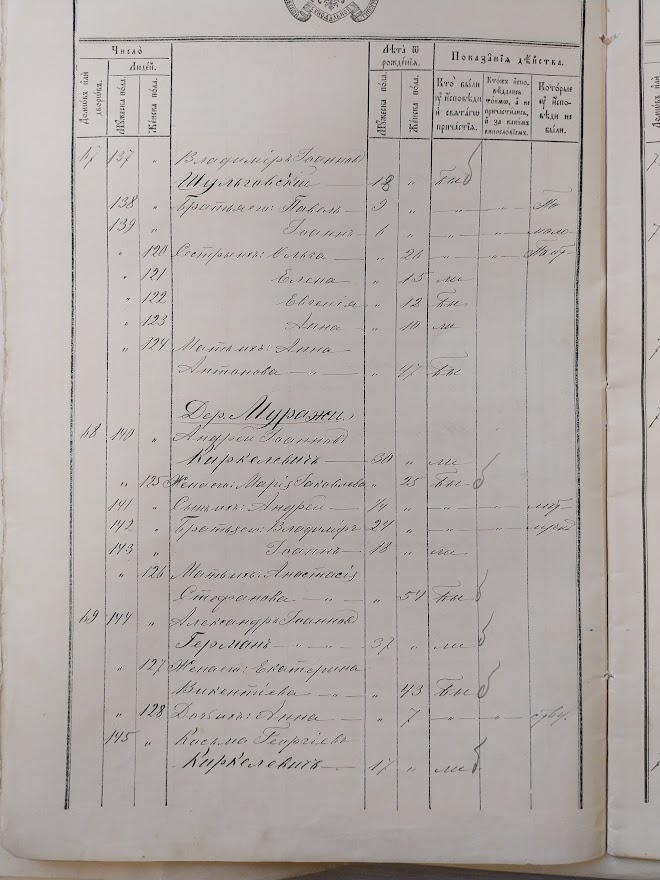 Число̀
Людей.
Лѣ̑та ѿ рождєнїѧ.
Показа̑нїѧ дѣ́йства.
Домѡ́въ илѝ дворѡ́въ.
Мꙋ́жеска по́ла.
Же́нска по́ла.
Мꙋ́жеска по́ла.
Же́нска по́ла.
Кто̀ бы́ли ᲂу҆ и҆сповѣди и҆ свѧта́гѡ причастїѧ.
Кто́ихъ и҆спо-вѣ́дались то́кмѡ, а҆ не причасти́лись, и҆ за каки́мъ винословїемъ.
Кото́рые ᲂу҆ и҆спо-вѣди не бы́ли.
67 137 " Владиміръ Іоанновъ
Шульговскій — 18 " Бы
138 " Братья его: Павелъ — 9 " — " — " — По
139 " Іоаннъ — 6 " — " — " — мало
" 120 Сестры ихъ: Ольга — " 26 — " — " —
" 121 Елена — " 15 ли
" 122 Евгенія — " 12 Бы
" 123 Анна — " 10 ли
" 124 Мать ихъ: Анна
Антонова — " — " 47 Бы
Дер. Муражи.
68 140 " Андрей Іоанновъ
Киркелевичъ — 30 " ли
" 125 Жена его: Марія Іаковлева " 25 Бы
141 " Сынъ ихъ: Андрей — 1/4 " — " — " —
142 " Братья его: Владиміръ 24 " — " — " —
143 " Іоаннъ — 18 " ли
" 126 Мать ихъ: Анастасія
Стефанова — " — " 54 Бы
69 144 " Александръ Іоанновъ
Германъ — " — 37 " ли
" 127 Жена его: Екатерина
Викентіева — " — " 43 Бы
" 128 Дочь ихъ: Анна — " 7 — " — " — ству.
145 " Косьма Георгіевъ
Киркелевичъ — 17 " ли